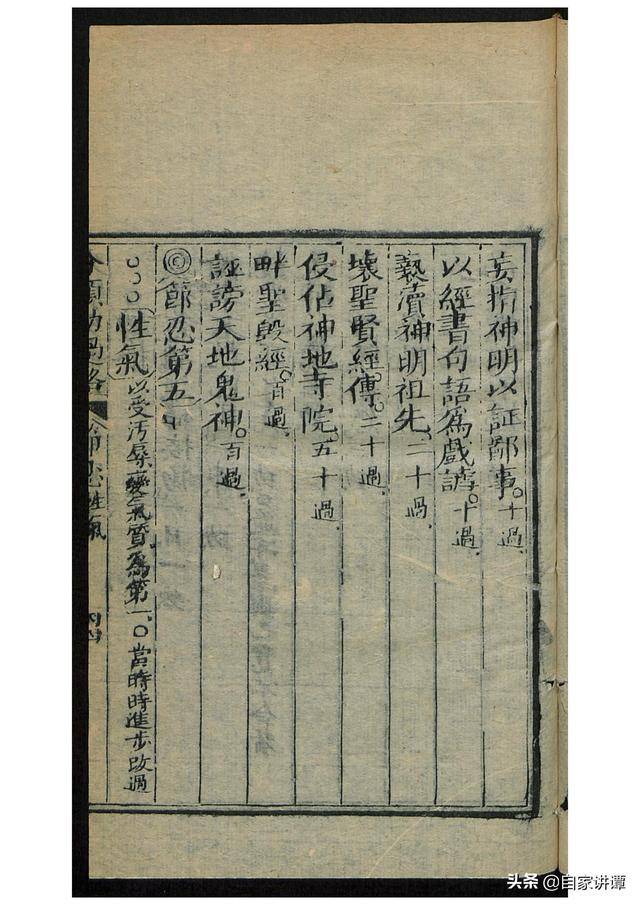 妄指神明以証鄙事。十過
以經書句語爲戲謔。十過
褻瀆神明祖先。二十過
壞聖賢經傳。二十過
侵佔神地寺院。五十過
畔聖毀經。百過
誣謗天地鬼神。百過
◎節忍第五
○○○性氣 以受汚辱變氣質爲第一○當時時進步改過
節忍性氣
头条 @自家讲谭